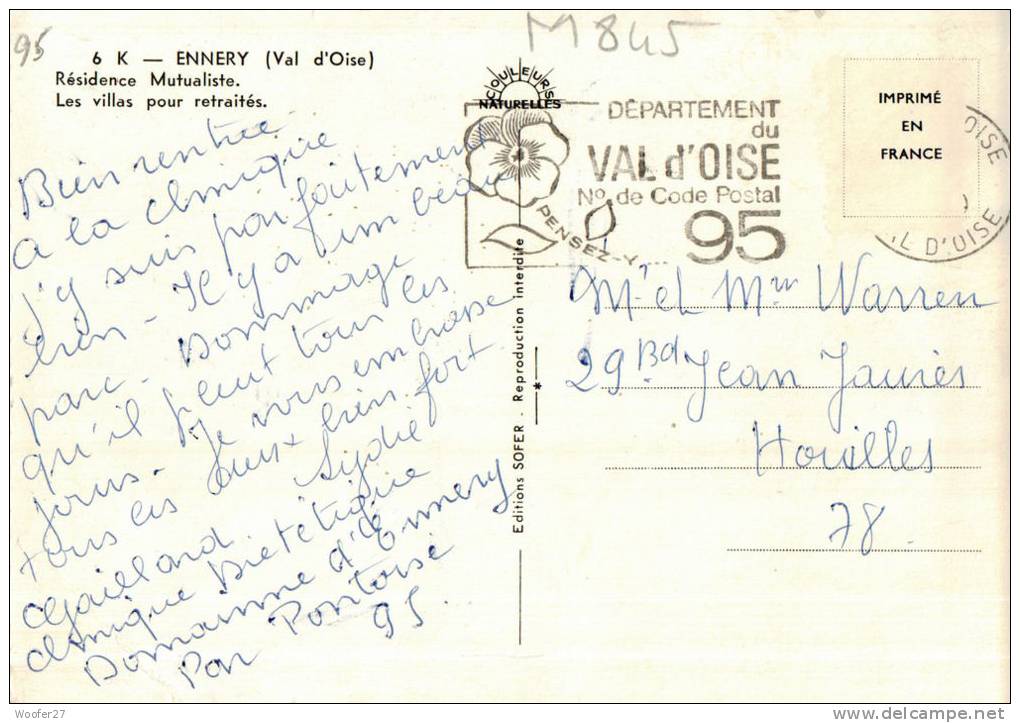 95
M 845
6 K — ENNERY (Val d'Oise)
Résidence Mutualiste.
Les villas pour retraités.
Bien rentrée
a la clinique
j'y suis parfaitement
bien - Il y a un beau
parc - Dommage
qu'il pleut tous les
jours. Je vous embrasse
tous les deux bien fort
Lydie
Gaillard
Clinique Dietétique
Domaine d'Ennery
Par Pontoise
95
COULEURS
NATURELLES
DÉPARTEMENT
du
VAL d'OISE
No. de Code Postal
95
PENSEZ-Y...
IMPRIMÉ
EN
FRANCE
OISE
L D'OISE
Editions SOFER . Reproduction interdite
Mr et Mme Warren
29 Bd Jean Jaurès
Houilles
78
Woofer27